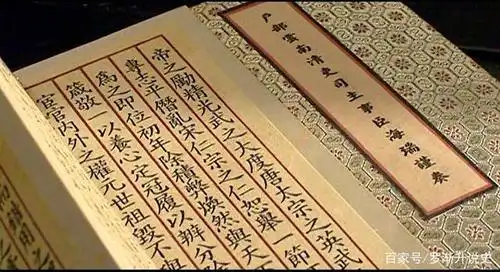 戶部雲南清吏司主事臣海瑞謹奏
帝之勵精光武之大度唐太宗之英武
志平僭亂宋仁宗之仁恕舉一節
為之即位初年除積弊煥然與天
箴敬一以養心定冠履以辨分
宦官內外之權元世祖毀不與
百家号/罗渐升说史